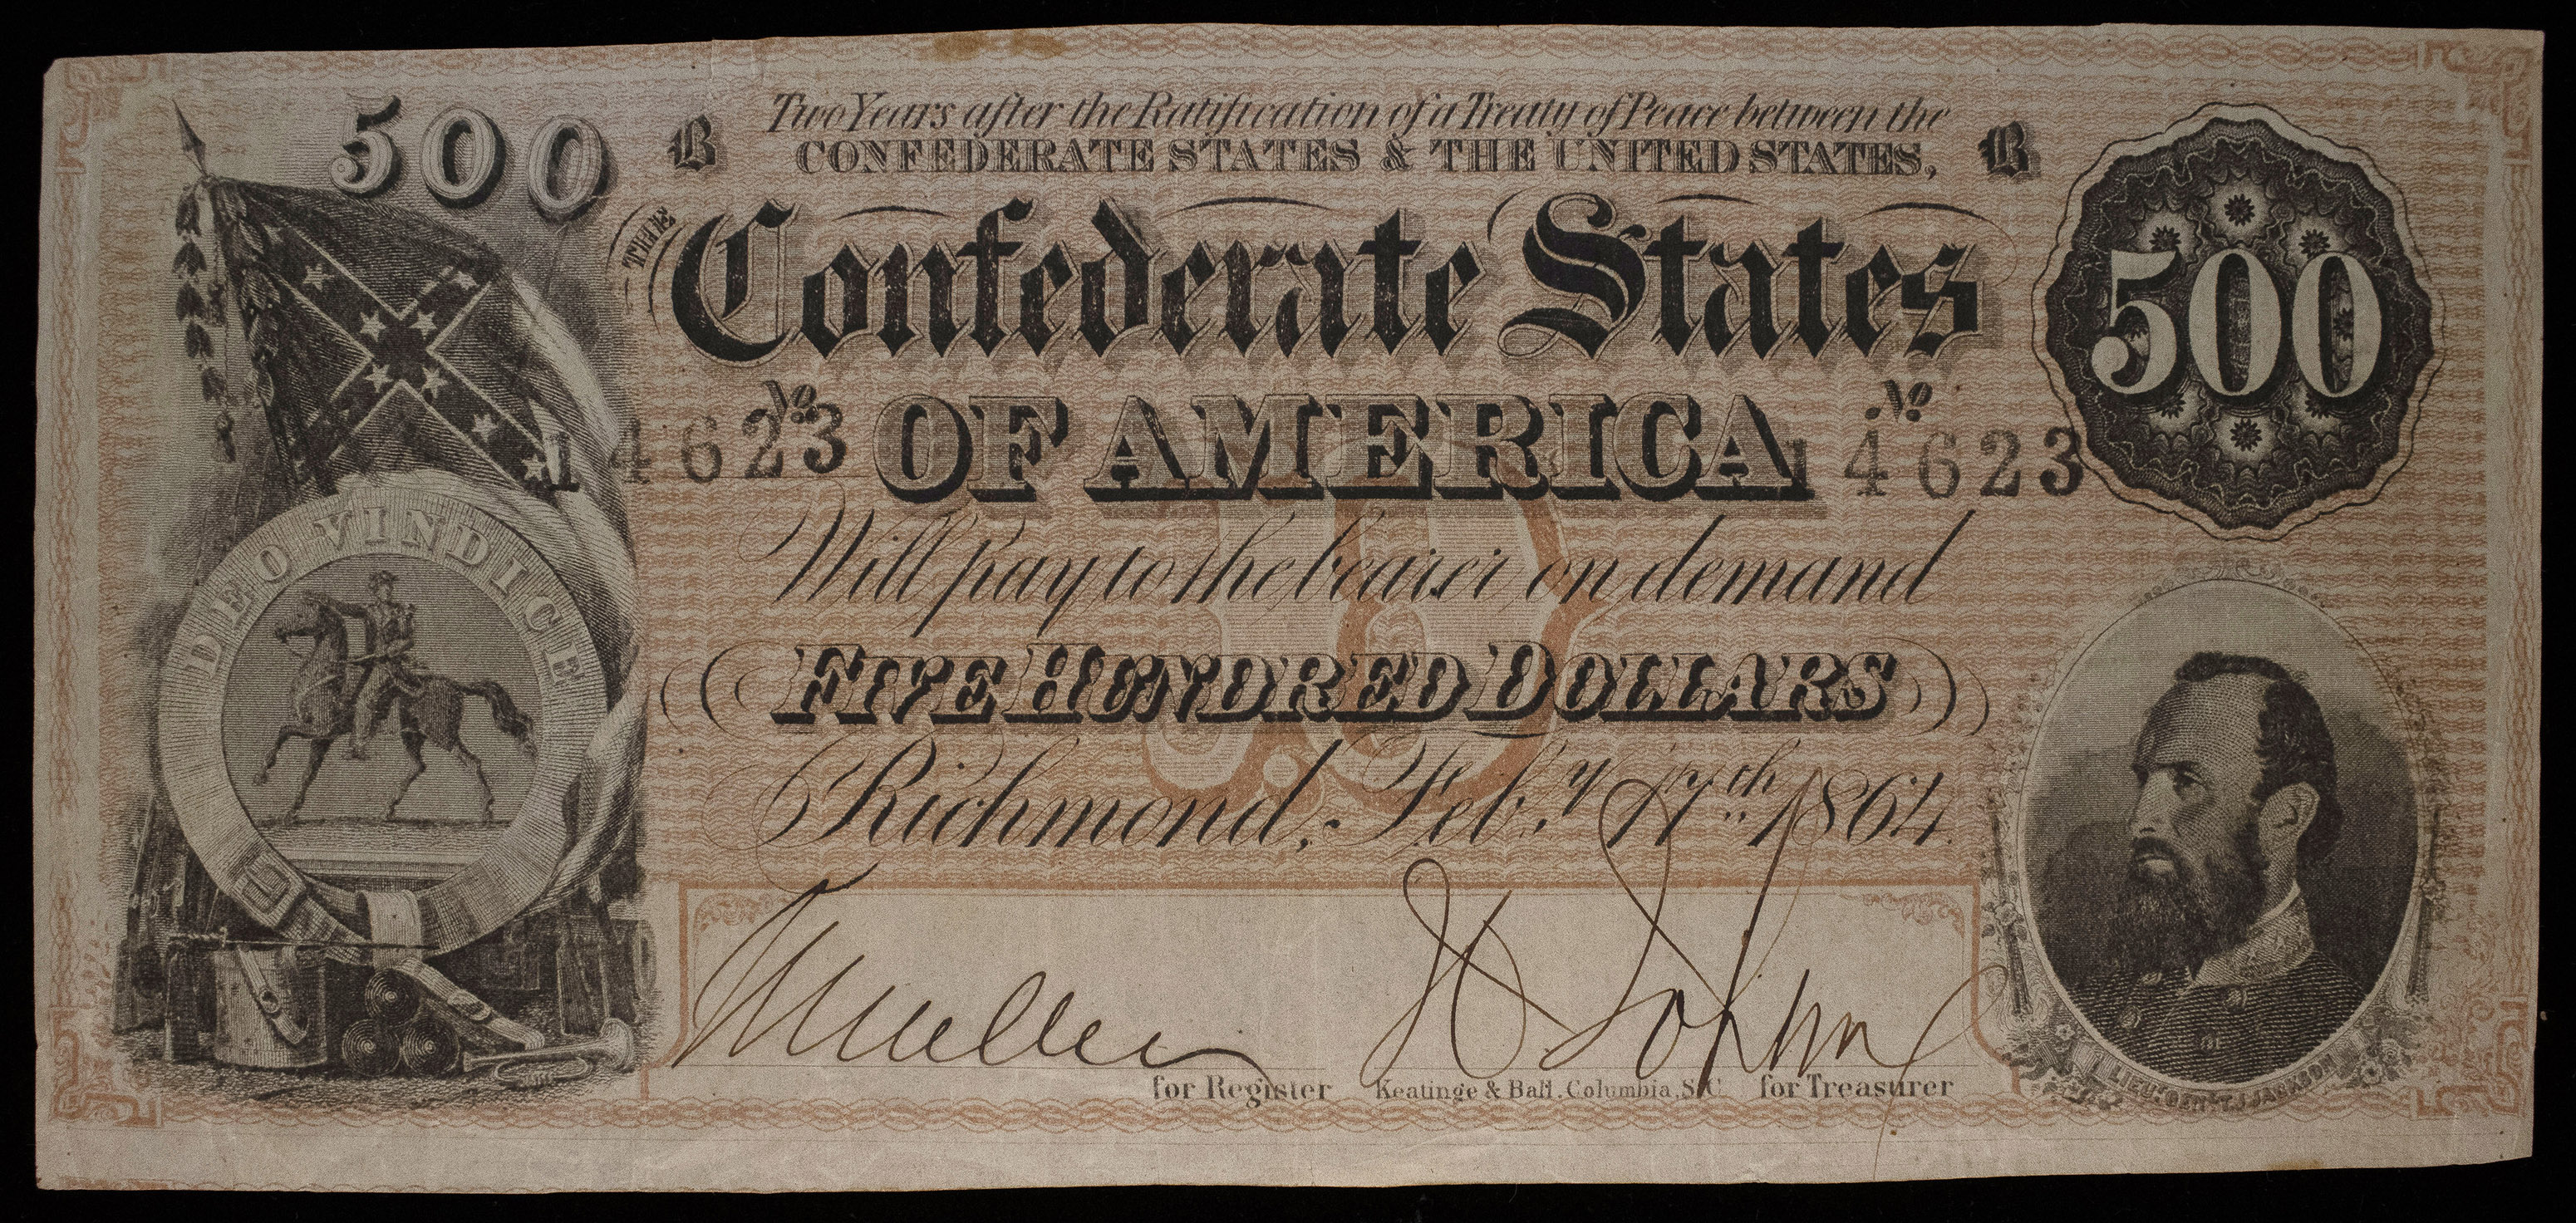 500
B Two Years after the Ratification of a Treaty of Peace between the B
CONFEDERATE STATES & THE UNITED STATES,
THE Confederate States
500
No 14623 OF AMERICA No 14623
Will pay to the bearer on demand
DEO VINDICE
FIVE HUNDRED DOLLARS
Richmond, Feb.y 17th 1864.
for Register Keatinge & Ball, Columbia, S.C. for Treasurer
LIEUT. GEN'L T.J. JACKSON